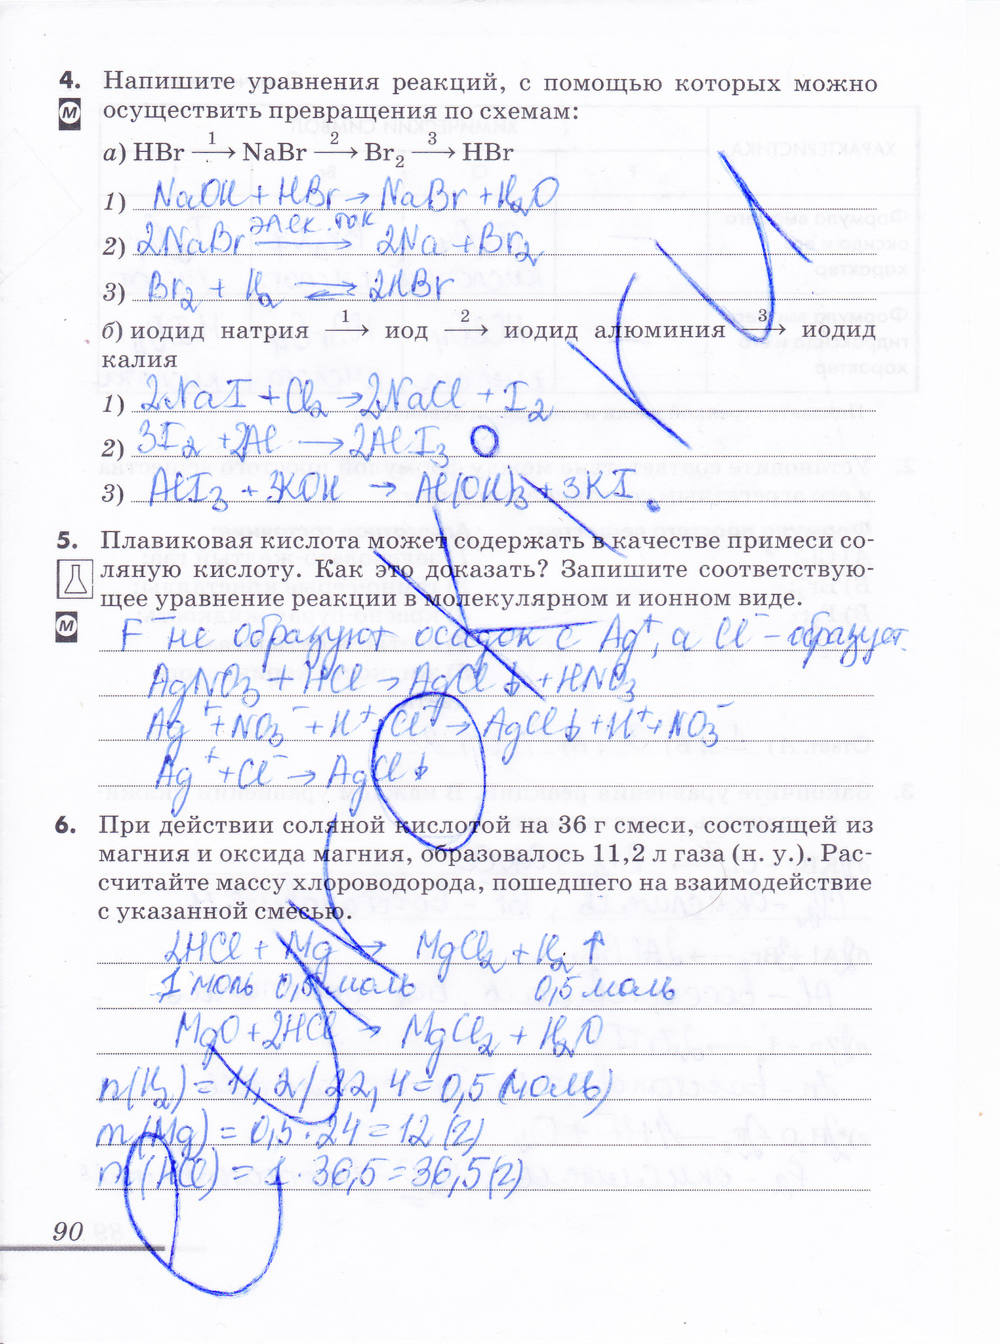 4. Напишите уравнения реакций, с помощью которых можно
М осуществить превращения по схемам:
а) HBr —1→ NaBr —2→ Br₂ —3→ HBr
1) NaOH + HBr → NaBr + H₂O
2) 2NaBr —элек. ток→ 2Na + Br₂
3) Br₂ + H₂ ⇌ 2HBr
б) иодид натрия —1→ иод —2→ иодид алюминия —3→ иодид
калия
1) 2NaI + Cl₂ → 2NaCl + I₂
2) 3I₂ + 2Al → 2AlI₃
3) AlI₃ + 3KOH → Al(OH)₃ + 3KI
5. Плавиковая кислота может содержать в качестве примеси со-
ляную кислоту. Как это доказать? Запишите соответствую-
щее уравнение реакции в молекулярном и ионном виде.
М F⁻ не образуют осадок с Ag⁺, а Cl⁻ - образует.
AgNO₃ + HCl → AgCl↓ + HNO₃
Ag⁺ + NO₃⁻ + H⁺ + Cl⁻ → AgCl↓ + H⁺ + NO₃⁻
Ag⁺ + Cl⁻ → AgCl↓
6. При действии соляной кислотой на 36 г смеси, состоящей из
магния и оксида магния, образовалось 11,2 л газа (н. у.). Рас-
считайте массу хлороводорода, пошедшего на взаимодействие
с указанной смесью.
2HCl + Mg → MgCl₂ + H₂↑
1 моль 0,5 моль 0,5 моль
MgO + 2HCl → MgCl₂ + H₂O
n(H₂) = 11,2/22,4 = 0,5 (моль)
m(Mg) = 0,5 · 24 = 12 (г)
m(HCl) = 1 · 36,5 = 36,5 (г)
90